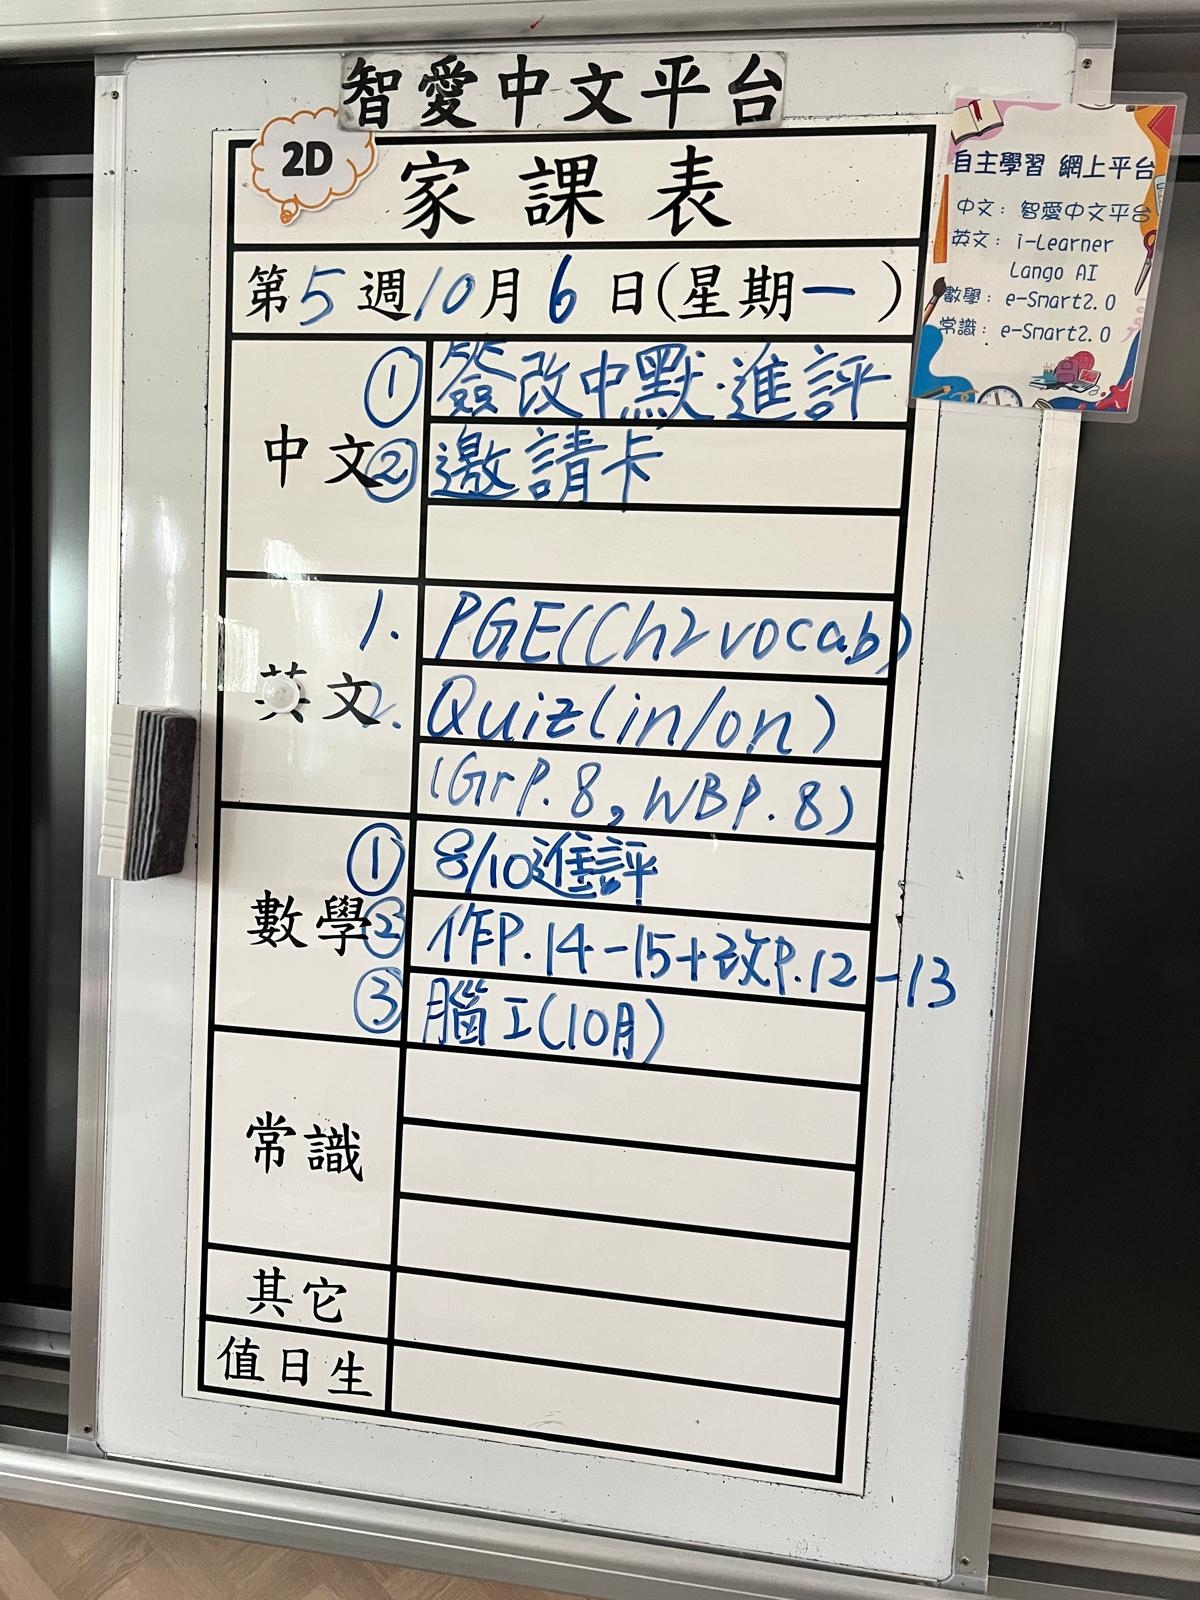 智愛中文平台
2D
家課表
第5週10月6日(星期一)
中文
① 簽改中默.進評
② 邀請卡
英文
1. PGE(Ch2 vocab)
2. Quiz(in/on)
(GrP.8, WBP.8)
數學
① 8/10進評
② 作P.14-15+改P.12-13
③ 腦工(10月)
常識
其它
值日生
自主學習 網上平台
中文: 智愛中文平台
英文: i-Learner
Lango AI
數學: e-Smart2.0
常識: e-Smart2.0